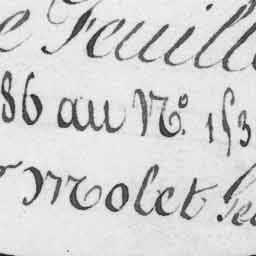 e Feuill
86 au N.º 153
r Molet